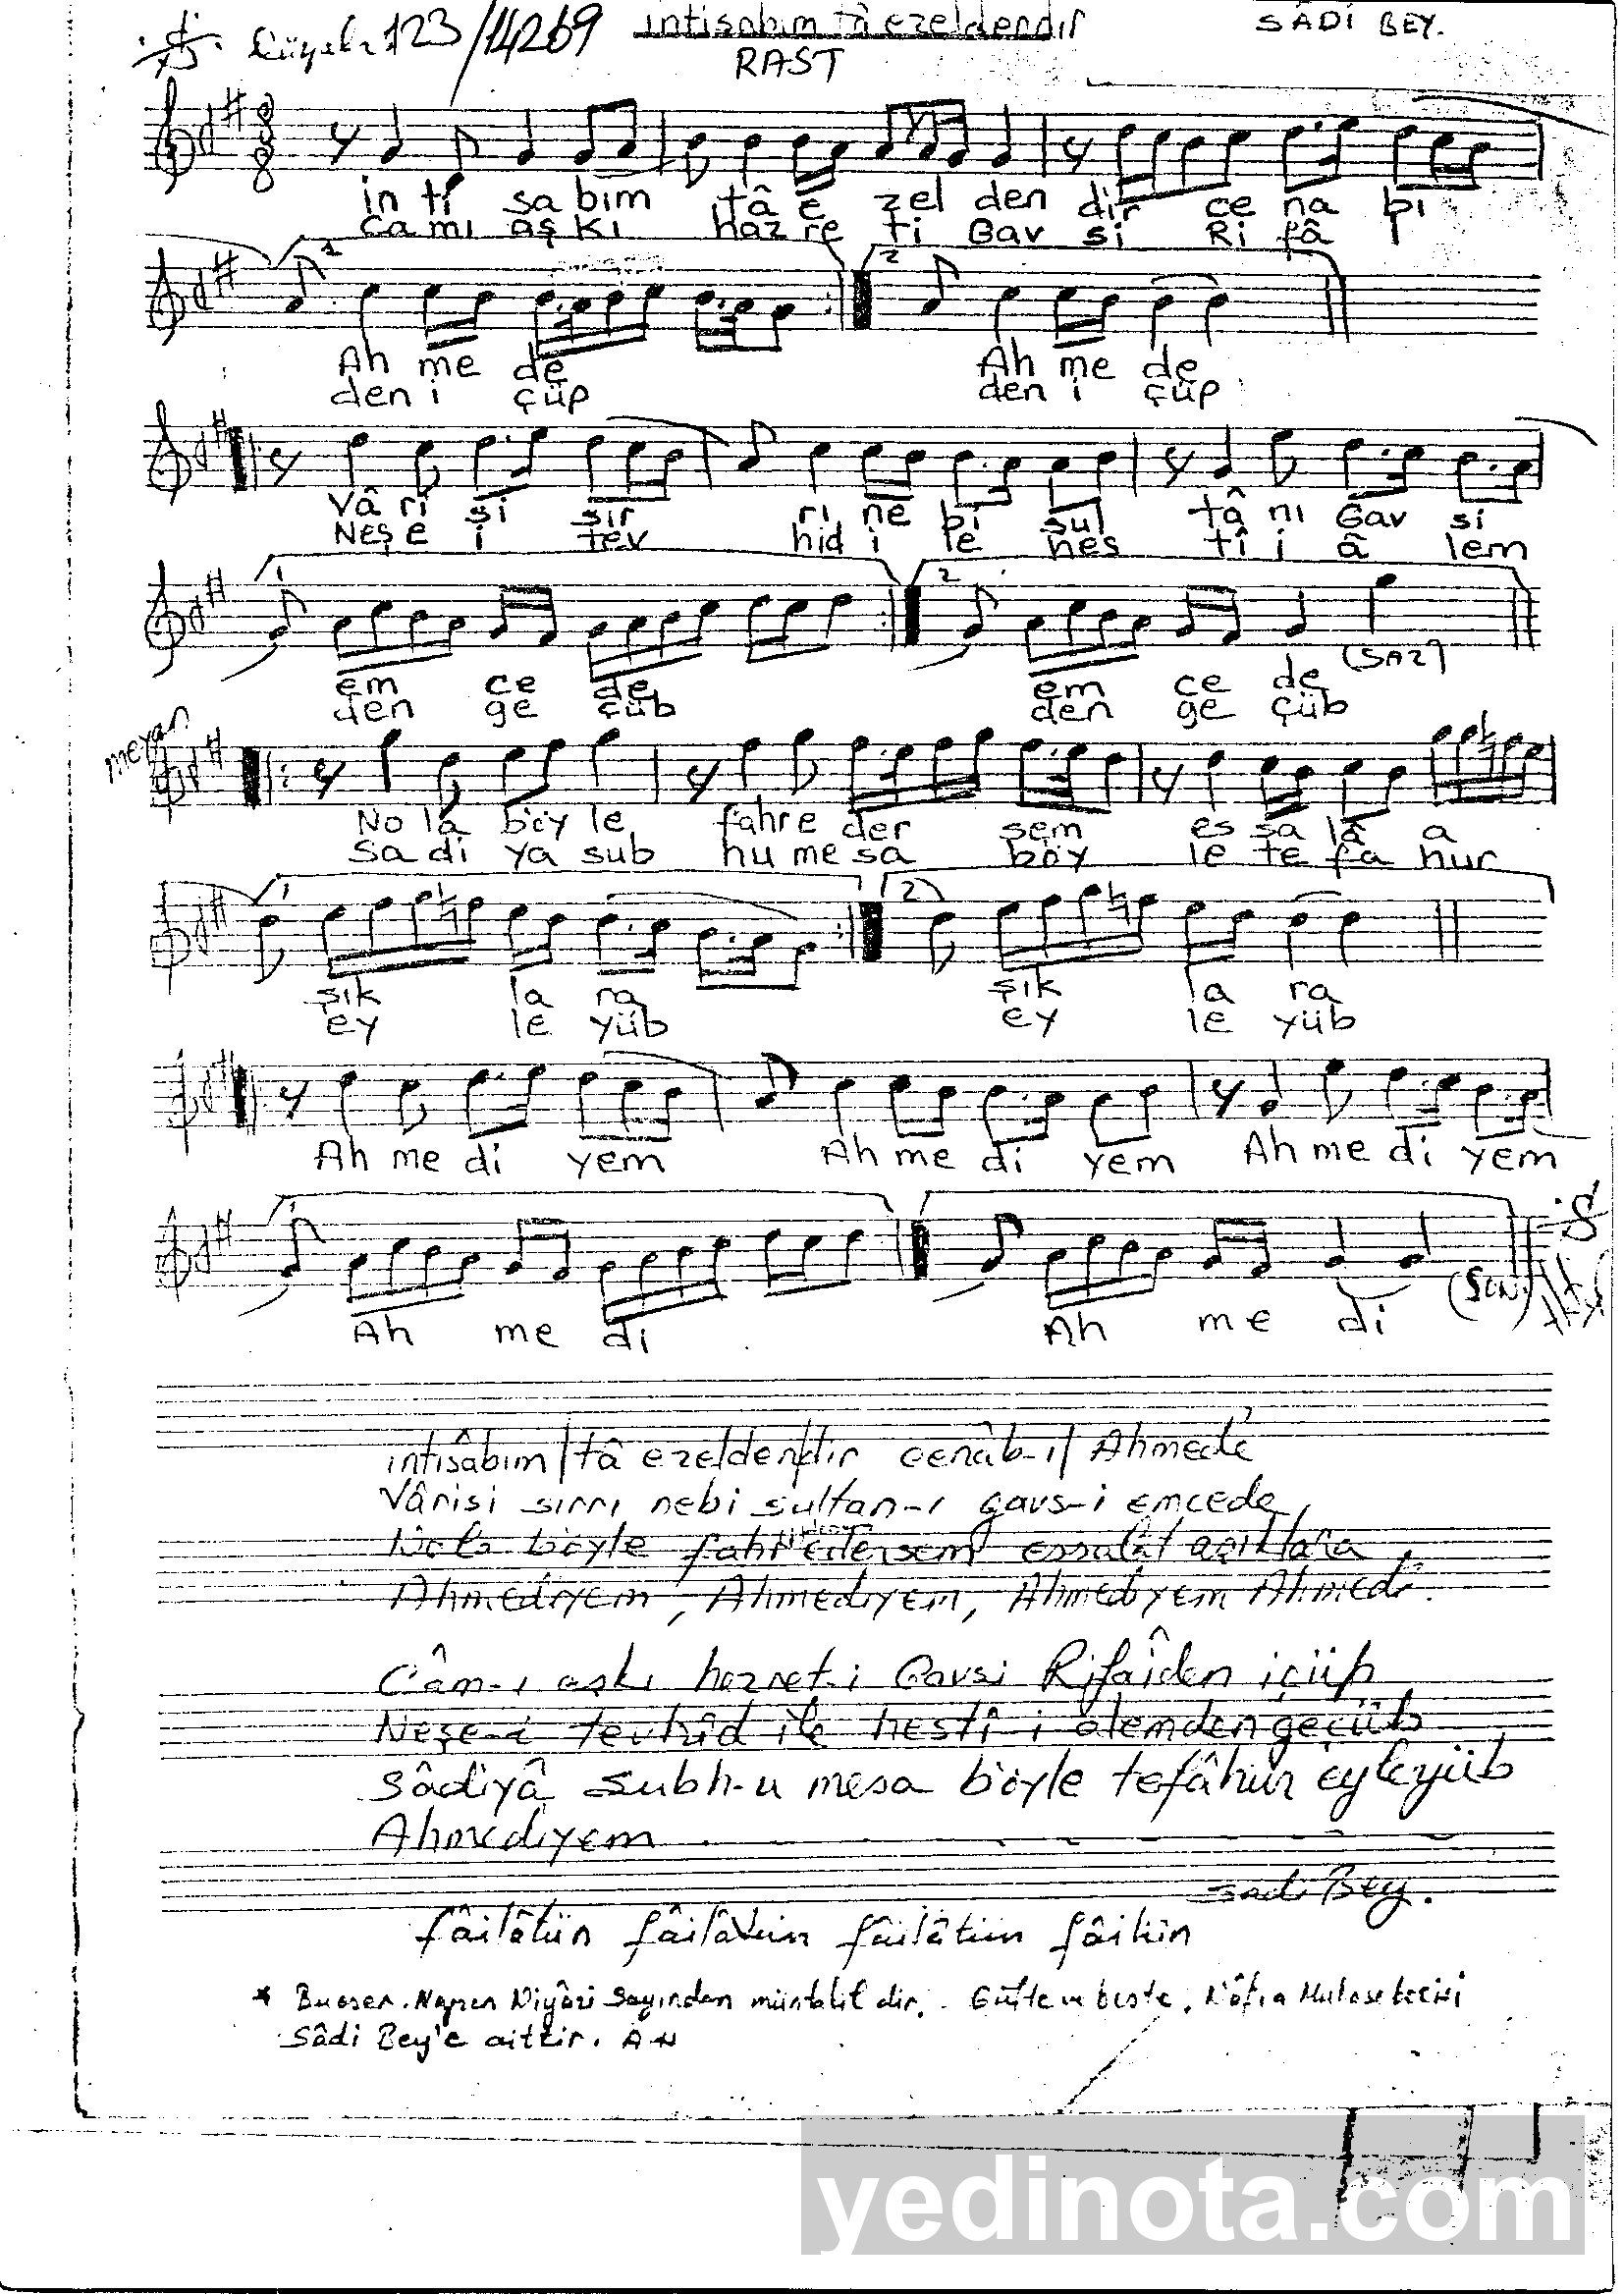 123/14269 intisabım tâ ezeldendir SÂDİ BEY.
RAST
in ti sa bım tâ e zel den dir ce na bı
ca mı aş kı haz re ti Gav si Ri fâ i
1 2
Ah me de Ah me de
den i çüp den i çüp
Vâ ri si sır rı ne bi sul tâ nı Gav si
Neş e i tev hid i le hes tî i â lem
1 2
(SAZ)
em ce de em ce de
den ge çüb den ge çüb
meyan
No la böy le fahr e der sem es sa lâ a
Sa di ya sub hu me sa böy le te fa hur
1 2
şık la ra şık la ra
ey le yüb ey le yüb
Ah me di yem Ah me di yem Ah me di yem
1
(SON)
Ah me di Ah me di
intisâbım/tâ ezelden/dir cenâb-ı/ Ahmede
Vârisi sırrı nebi sultan-ı gavs-i emcede
Nola böyle fahr edersem essalâ/ aşıklara
Ahmediyem, Ahmediyem, Ahmediyem Ahmedi.
Câm-ı aşkı hazret-i Gavsi Rifaîden içüp
Neşe-i tevhîd ile hestî-i alemden geçüb
Sâdiyâ subh-u mesa böyle tefâhür eyleyüb
Ahmediyem
Sadi Bey.
fâilâtün fâilâtün fâilâtün fâilün
* Bu eser. Neyzen Niyâzi Sayından müntakil dir. Güfte ve beste,
Sâdi Bey'e aittir. A N
yedinota.com